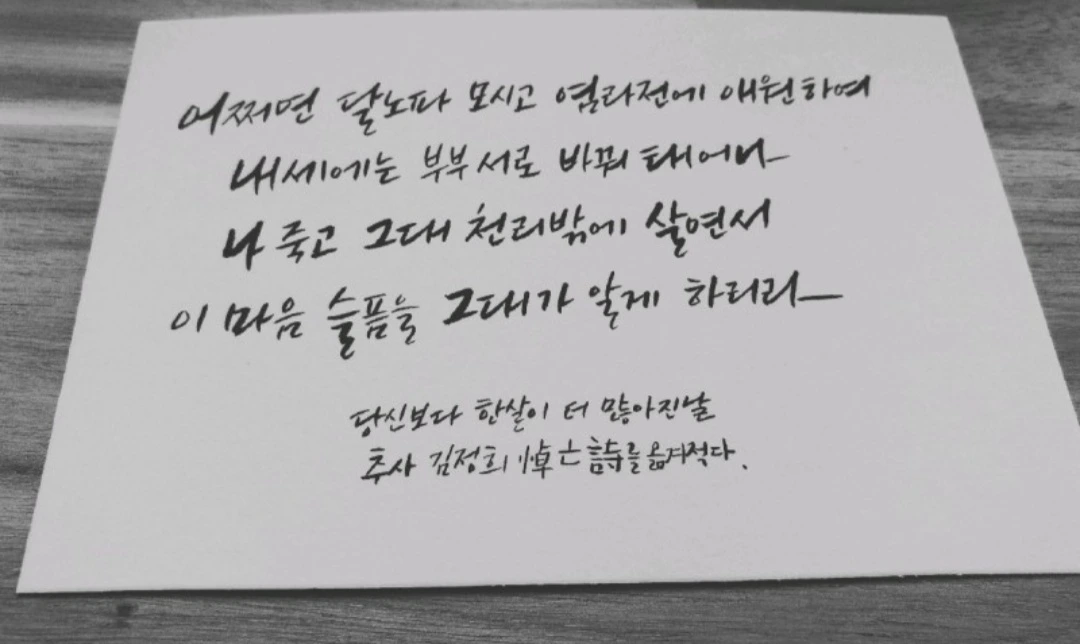 어쩌면 달노파 모시고 염라전에 애원하여
내세에는 부부 서로 바꿔 태어나
나 죽고 그대 천리밖에 살면서
이 마음 슬픔을 그대가 알게 하리라
당신보다 한살이 더 많아진날
추사 김정희 悼亡詩를 옮겨적다.